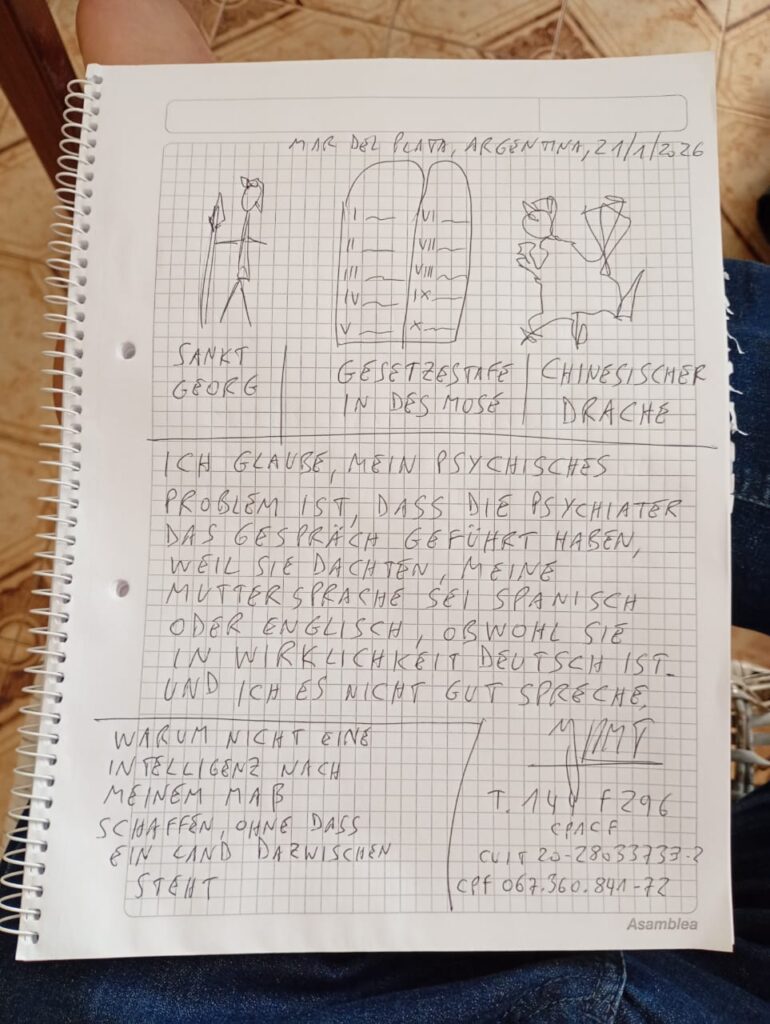 MAR DEL PLATA, ARGENTINA, 21/1/2026
I
II
III
IV
V
VI
VII
VIII
IX
X
SANKT
GEORG
GESETZESTAFE
IN DES MOSE
CHINESISCHER
DRACHE
ICH GLAUBE, MEIN PSYCHISCHES
PROBLEM IST, DASS DIE PSYCHIATER
DAS GESPRÄCH GEFÜHRT HABEN,
WEIL SIE DACHTEN, MEINE
MUTTERSPRACHE SEI SPANISCH
ODER ENGLISCH, OBWOHL SIE
IN WIRKLICHKEIT DEUTSCH IST.
UND ICH ES NICHT GUT SPRECHE.
WARUM NICHT EINE
INTELLIGENZ NACH
MEINEM MAß
SCHAFFEN, OHNE DASS
EIN LAND DAZWISCHEN
STEHT
T. 144 F 296
CPACF
CUIT 20-28033733-2
CPF 067.360.841-72
Asamblea